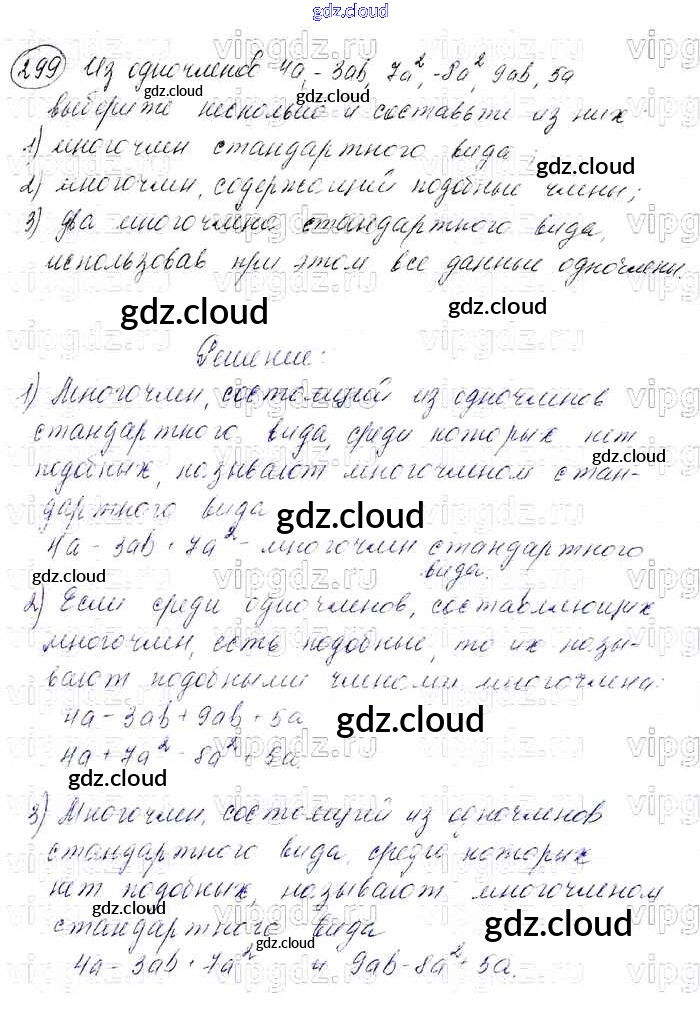 gdz.cloud
299 Из одночленов 4a, -3ab, 7a², -8a², 9ab, 5a
выберите несколько и составьте из них
1) многочлен стандартного вида;
2) многочлен, содержащий подобные члены;
3) два многочлена стандартного вида,
использовав при этом все данные одночлены.
Решение:
1) Многочлен, состоящий из одночленов
стандартного вида, среди которых нет
подобных, называют многочленом стан-
дартного вида
4a - 3ab + 7a² - многочлен стандартного
вида.
2) Если среди одночленов, составляющих
многочлен, есть подобные, то их назы-
вают подобными членами многочлена:
4a - 3ab + 9ab + 5a
4a + 7a² - 8a² + 5a.
3) Многочлен, состоящий из одночленов
стандартного вида, среди которых
нет подобных, называют многочленом
стандартного вида
4a - 3ab + 7a² и 9ab - 8a² + 5a.